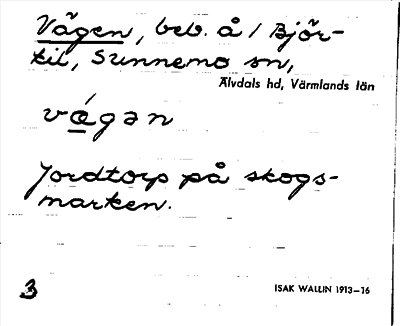 Vågen, beb. å / Björ-
kil, Sunnemo sn,
Älvdals hd, Värmlands län
vágən
Jordtorp på skogs-
marken.
3
ISAK WALLIN 1913-16